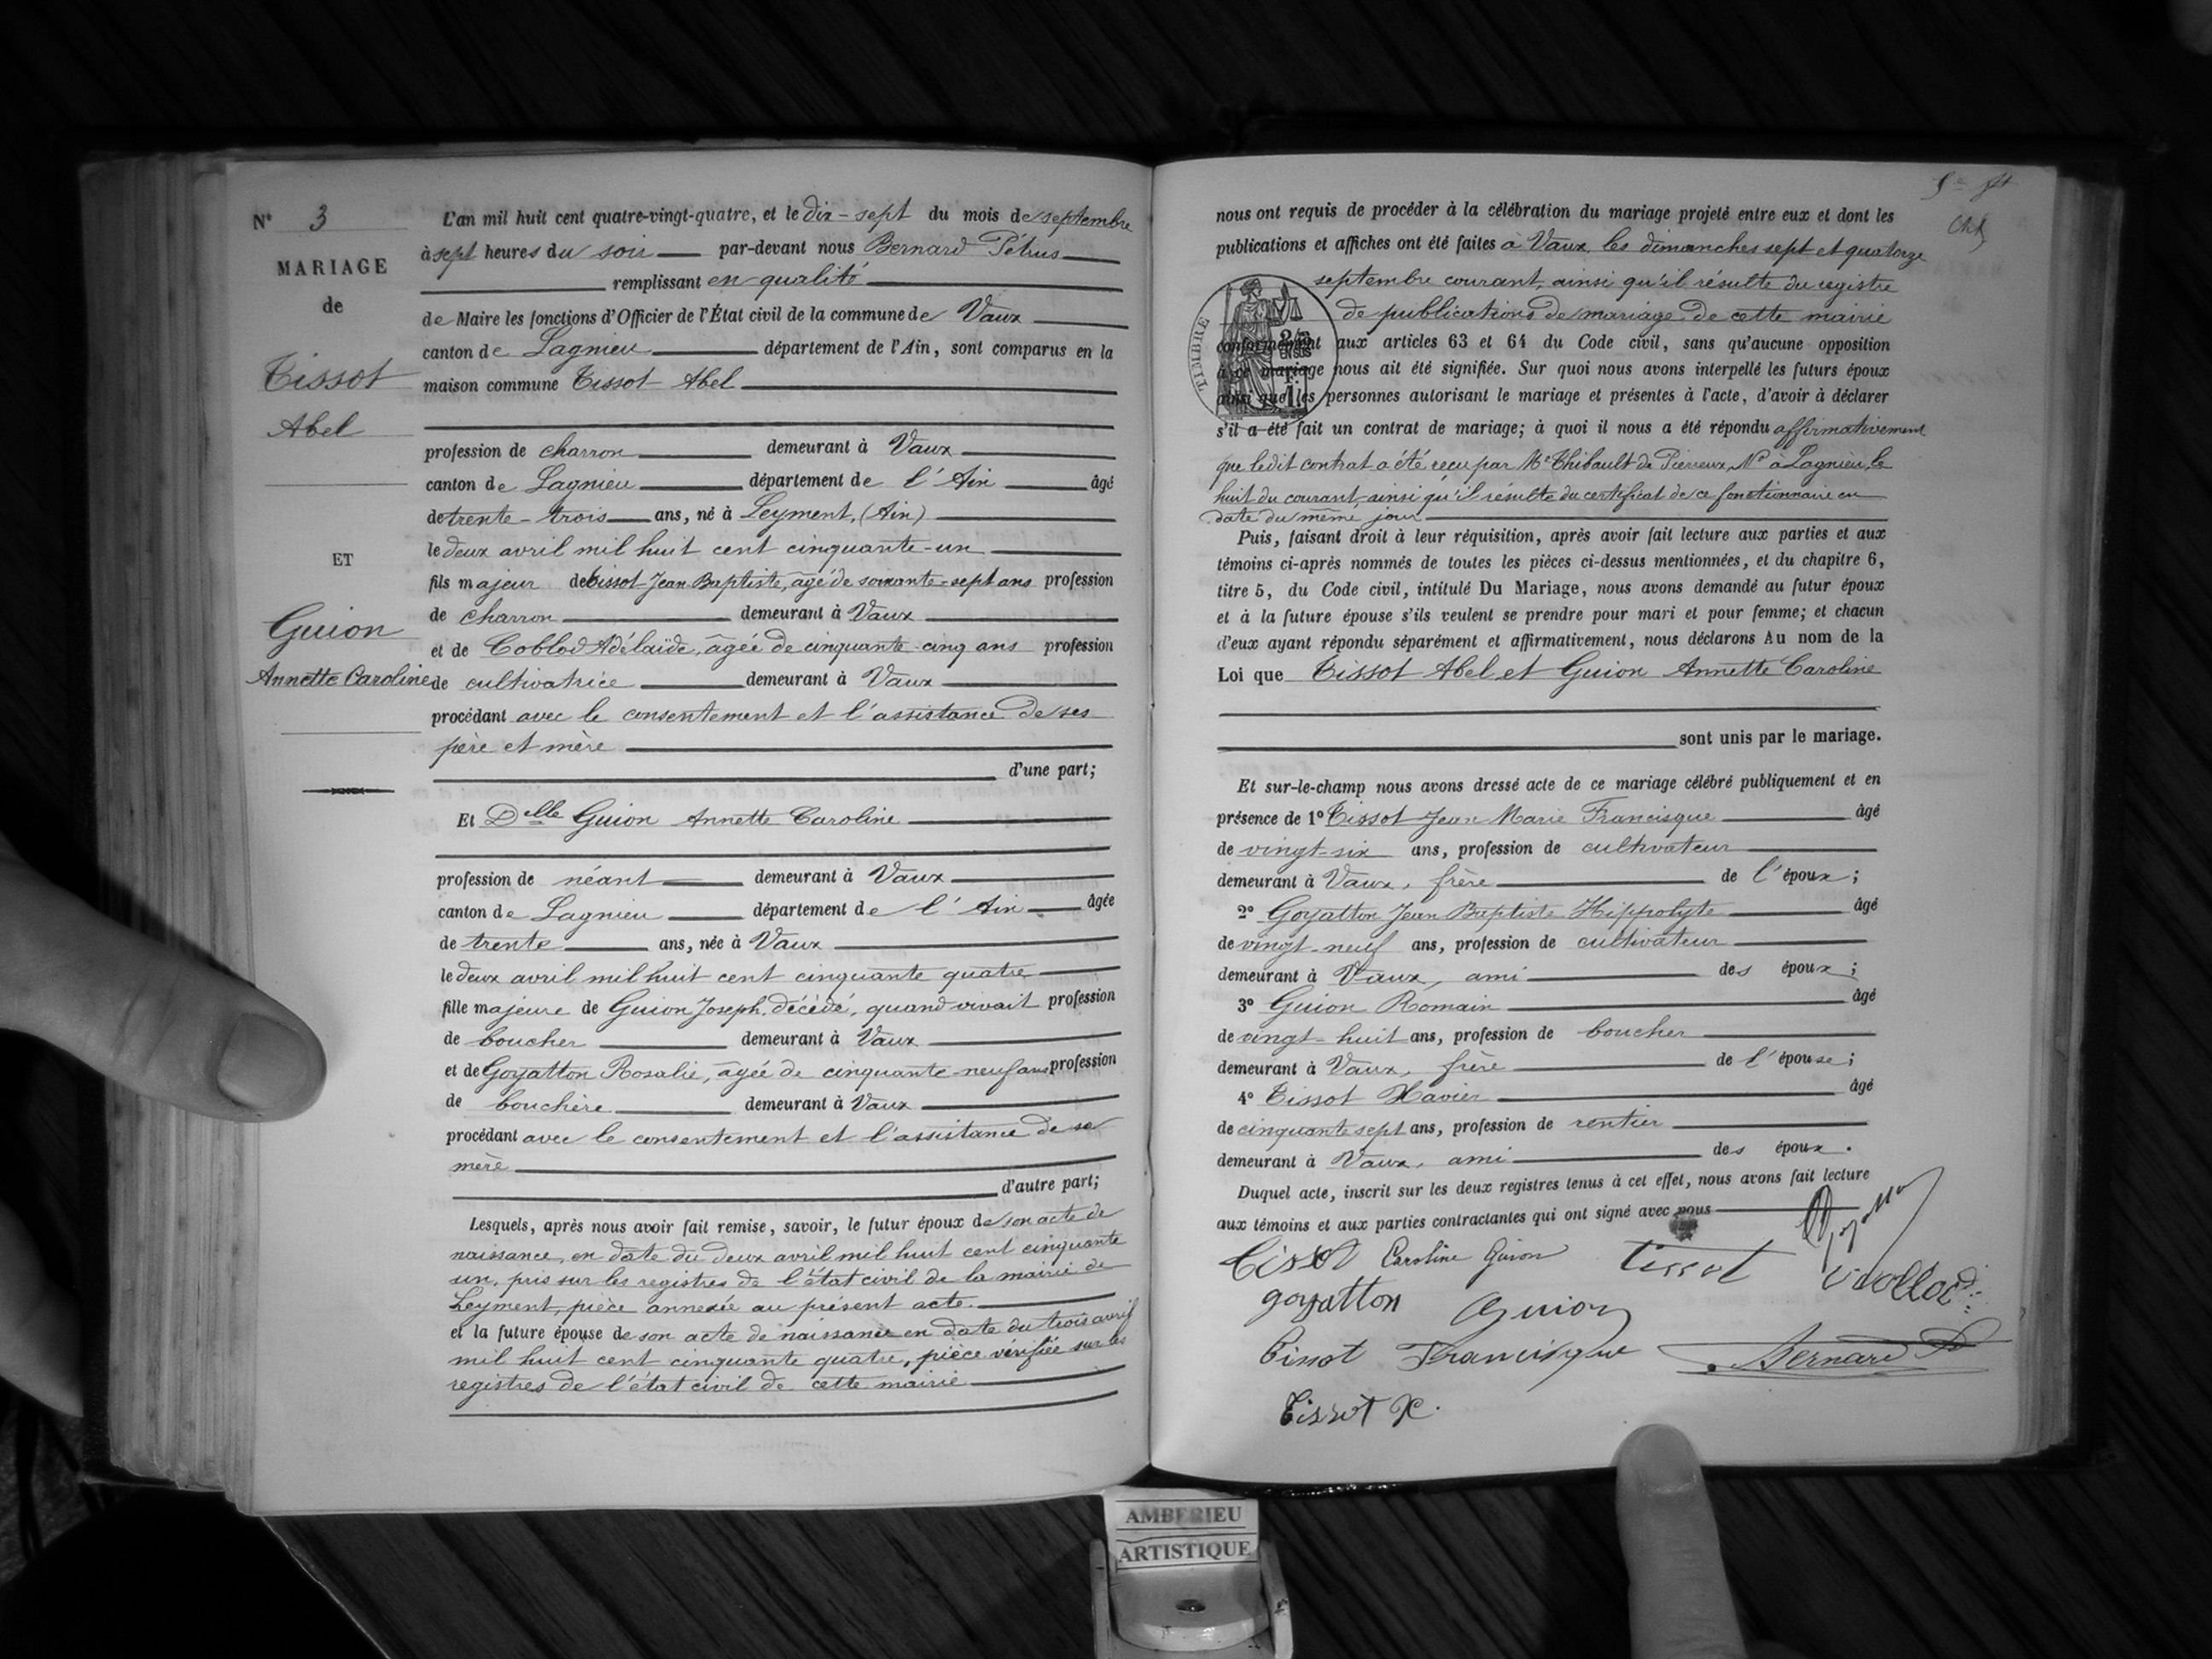 N° 3
MARIAGE
de
Tissot
Abel
ET
Guion
Annette Caroline
L'an mil huit cent quatre-vingt-quatre, et le dix-sept du mois de septembre
à sept heures du soir par-devant nous Bernard Pétrus
remplissant en qualité
de Maire les fonctions d'Officier de l'État civil de la commune de Vaux
canton de Lagnieu département de l'Ain, sont comparus en la
maison commune Tissot Abel
profession de charron demeurant à Vaux
canton de Lagnieu département de l'Ain âgé
de trente-trois ans, né à Leyment, (Ain)
le deux avril mil huit cent cinquante-un
fils majeur de Tissot Jean Baptiste, âgé de soixante-sept ans profession
de charron demeurant à Vaux
et de Coblod Adélaïde, âgée de cinquante-cinq ans profession
de cultivatrice demeurant à Vaux
procédant avec le consentement et l'assistance de ses
père et mère
d'une part;
Et Delle Guion Annette Caroline
profession de néant demeurant à Vaux
canton de Lagnieu département de l'Ain âgée
de trente ans, née à Vaux
le deux avril mil huit cent cinquante quatre
fille majeure de Guion Joseph, décédé, quand vivait profession
de boucher demeurant à Vaux
et de Goyatton Rosalie, âgée de cinquante-neuf ans profession
de bouchère demeurant à Vaux
procédant avec le consentement et l'assistance de sa
mère
d'autre part;
Lesquels, après nous avoir fait remise, savoir, le futur époux de son acte de
naissance, en date du deux avril mil huit cent cinquante
un, pris sur les registres de l'état civil de la mairie de
Leyment, pièce annexée au présent acte.
et la future épouse de son acte de naissance en date du trois avril
mil huit cent cinquante quatre, pièce vérifiée sur les
registres de l'état civil de cette mairie
nous ont requis de procéder à la célébration du mariage projeté entre eux et dont les
publications et affiches ont été faites à Vaux, les dimanches sept et quatorze
septembre courant, ainsi qu'il résulte du registre
de publications de mariage de cette mairie
conformément aux articles 63 et 64 du Code civil, sans qu'aucune opposition
à ce mariage nous ait été signifiée. Sur quoi nous avons interpellé les futurs époux
ainsi que les personnes autorisant le mariage et présentes à l'acte, d'avoir à déclarer
s'il a été fait un contrat de mariage; à quoi il nous a été répondu affirmativement
que ledit contrat a été reçu par Me Thibault de Pierreux, Nre à Lagnieu, le
huit du courant, ainsi qu'il résulte du certificat de ce fonctionnaire en
date du même jour
TIMBRE
Puis, faisant droit à leur réquisition, après avoir fait lecture aux parties et aux
témoins ci-après nommés de toutes les pièces ci-dessus mentionnées, et du chapitre 6,
titre 5, du Code civil, intitulé Du Mariage, nous avons demandé au futur époux
et à la future épouse s'ils veulent se prendre pour mari et pour femme; et chacun
d'eux ayant répondu séparément et affirmativement, nous déclarons Au nom de la
Loi que Tissot Abel et Guion Annette Caroline
sont unis par le mariage.
Et sur-le-champ nous avons dressé acte de ce mariage célébré publiquement et en
présence de 1° Tissot Jean Marie Francisque âgé
de vingt-six ans, profession de cultivateur
demeurant à Vaux, frère de l'époux;
2° Goyatton Jean Baptiste Hippolyte âgé
de vingt-neuf ans, profession de cultivateur
demeurant à Vaux, ami des époux;
3° Guion Romain âgé
de vingt-huit ans, profession de boucher
demeurant à Vaux, frère de l'épouse;
4° Tissot Xavier âgé
de cinquante sept ans, profession de rentier
demeurant à Vaux, ami des époux.
Duquel acte, inscrit sur les deux registres tenus à cet effet, nous avons fait lecture
aux témoins et aux parties contractantes qui ont signé avec nous
Tissot Caroline Guion Tissot
goyatton Guion
Tissot Francisque Bernard P
Tissot X.
AMBERIEU
ARTISTIQUE